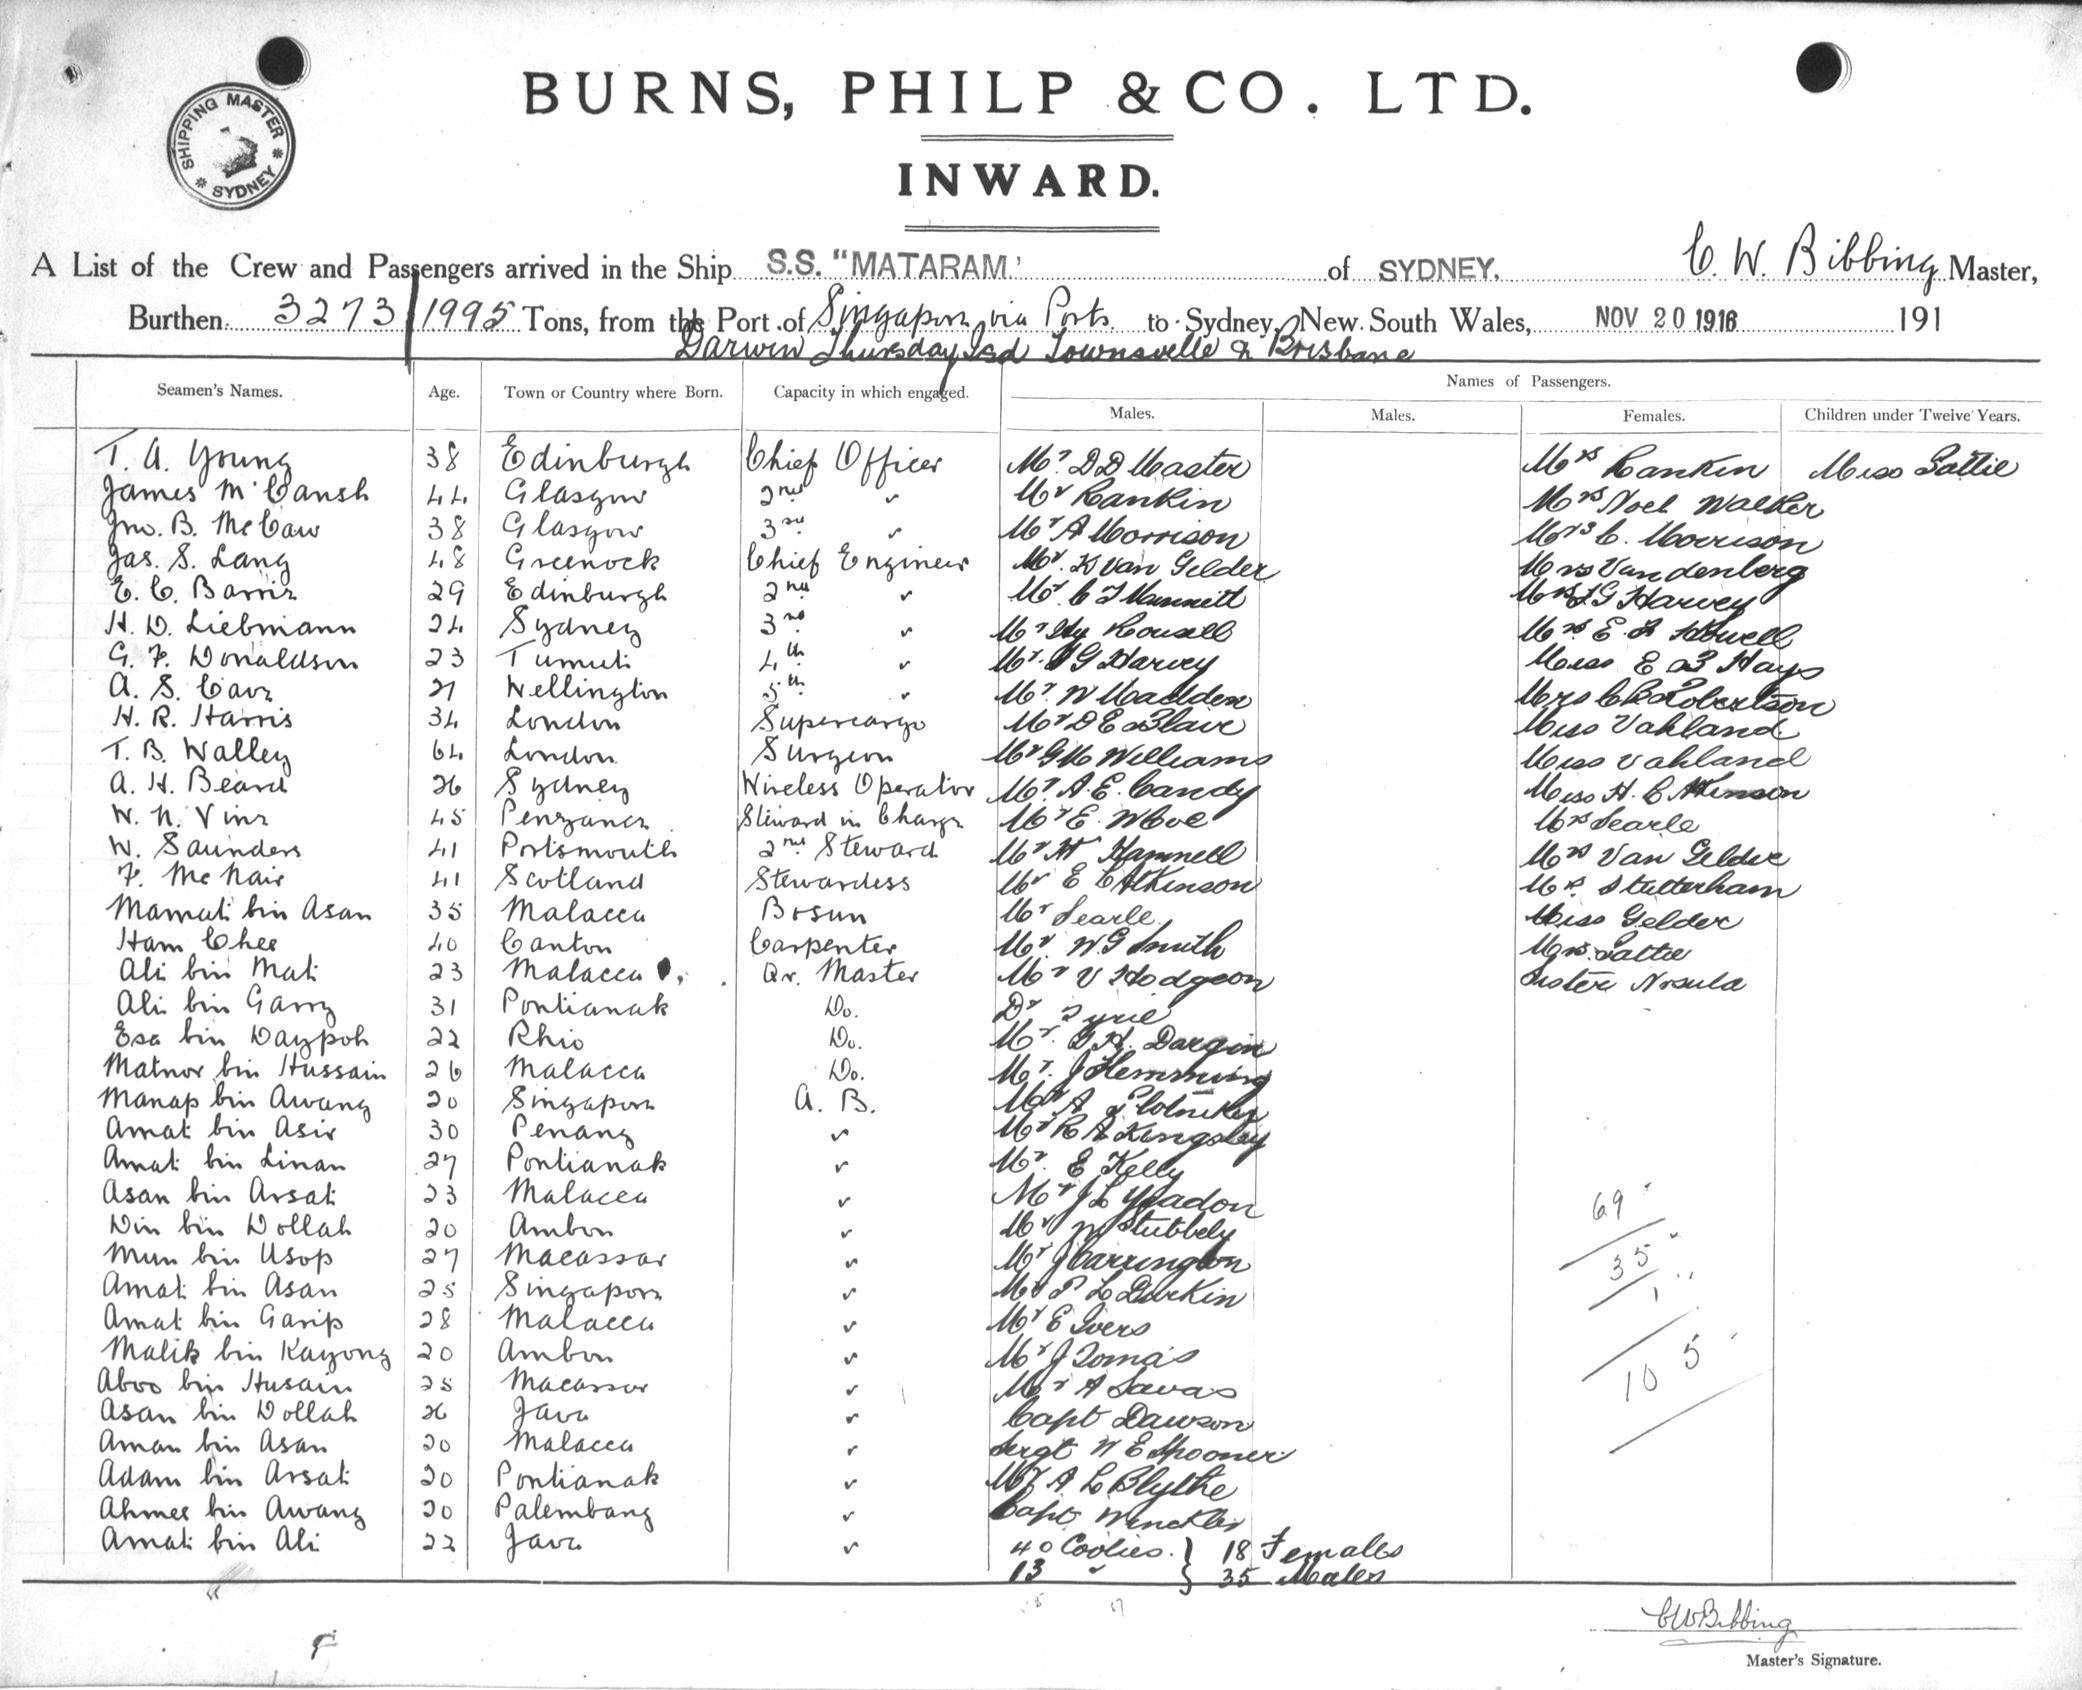 BURNS, PHILP & CO. LTD.
SHIPPING MASTER * SYDNEY *
INWARD.
A List of the Crew and Passengers arrived in the Ship S.S. "MATARAM." of SYDNEY, C. W. Bibbing Master,
Burthen 3273/1995 Tons, from the Port of Singapore via Ports to Sydney, New South Wales, NOV 20 1916 191
Darwin Thursday Isd Townsville & Brisbane
Names of Passengers.
Seamen's Names. Age. Town or Country where Born. Capacity in which engaged. Males. Males. Females. Children under Twelve Years.
T. A. Young 38 Edinburgh Chief Officer Mr D D Master Mrs Rankin Miss Lattie
James McCansh 44 Glasgow 2nd " Mr Rankin Mrs Noel Walker
Jno. B. McCaw 38 Glasgow 3rd " Mr A Morrison Mrs C. Morrison
Jas. S. Lang 48 Greenock Chief Engineer Mr. K Van Gelder Mrs Vandenberg
E. C. Barrie 29 Edinburgh 2nd " Mr. C J Mannett Mrs J G Harvey
H. D. Liebmann 24 Sydney 3rd " Mr Hy Rousell Mrs E J Howell
G. F. Donaldson 23 Tumut 4th " Mr. J G Harvey Miss E B Hays
A. S. Carr 21 Wellington 5th " Mr. W Madden Mrs C B Robertson
H. R. Harris 34 London Supercargo Mr D E Blair Miss Vahland
T. B. Walley 64 London Surgeon Mr G M Williams Miss Vahland
A. H. Beard 26 Sydney Wireless Operator Mr. A. E. Candy Miss H. C Atkinson
W. N. Vine 45 Penzance Steward in Charge Mr E. Mrs Searle
W. Saunders 41 Portsmouth 2nd Steward Mr H Hamnell Mrs Van Gelder
F. McNair 41 Scotland Stewardess Mr E C Atkinson Mrs. Stutterham
Mamat bin Asan 35 Malacca Bosun Mr Searle Miss Gelder
Ham Chee 40 Canton Carpenter Mr. W G Smith Mrs. Lattie
Ali bin Mat 23 Malacca Qr. Master Mr V Hodgson Sister Ursula
Ali bin Garry 31 Pontianak Do. Dr Tyrie
Esa bin Daypoh 22 Rhio Do. Mr. G H. Dargin
Matnor bin Hussain 26 Malacca Do. Mr. J Hemming
Manap bin Awang 20 Singapore A. B. Mr A Plotnikey
Amat bin Asir 30 Penang " Mr R A Kingsley
Amat bin Linan 27 Pontianak " Mr. E Kelly
Asan bin Arsat 23 Malacca " Mr J L Yeadon 69
Din bin Dollah 20 Ambon " Mr W Stubbely
Mun bin Usop 27 Macassar " Mr J Carrington 35
Amat bin Asan 25 Singapore " Mr P L Durkin 1
Amat bin Garip 28 Malacca " Mr E Ivers
Malik bin Kayong 20 Ambon " Mr J Tomas 105
Aboo bin Husain 25 Macassar " Mr A Savas
Asan bin Dollah 26 Java " Capt Dawson
Aman bin Asan 20 Malacca " Sergt W E Spooner
Adam bin Arsat 20 Pontianak " Mr A L Blythe
Ahmee bin Awang 20 Palembang " Capt Winckler
Amat bin Ali 22 Java " 40 Coolies. } 18 Females
13 " } 35 Males
CWBibbing
Master's Signature.